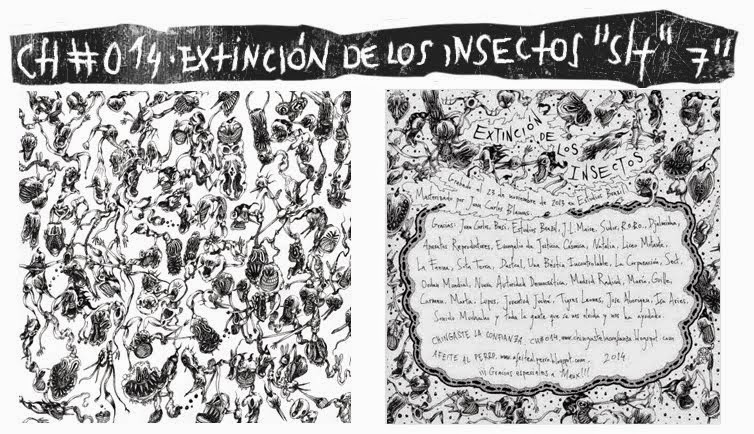 CH #014 · EXTINCIÓN DE LOS INSECTOS "S/T" 7"
EXTINCIÓN
DE
LOS
INSECTOS
Grabado el 23 de noviembre de 2013 en Estudios Brazil
Masterizado por Juan Carlos Blancas
Gracias: Juan Carlos, Estudios Brazil, J.L. Maire,
Aparatos Reproductores, Evangelio de Justicia Cósmica, Natalia,
La Una Bestia Incontrolable, La Corporación,
Orden Mundial, Nueva Autoridad Democrática, Madrid Radical, María, Grillo,
Carmena, Marta, Lupus, Juventud Juché, Tigres Leones, Jose Aborigen,
Sonido Muchacho y toda la gente que se nos olvida y nos ha ayudado.
CHINGASTE LA CONFIANZA. CH#014. www.chingastelaconfianza.blogspot.com
AFEITE AL PERRO. www.afeitealperro.blogspot.com. 2014.
¡¡¡ Gracias especiales a Meux!!!